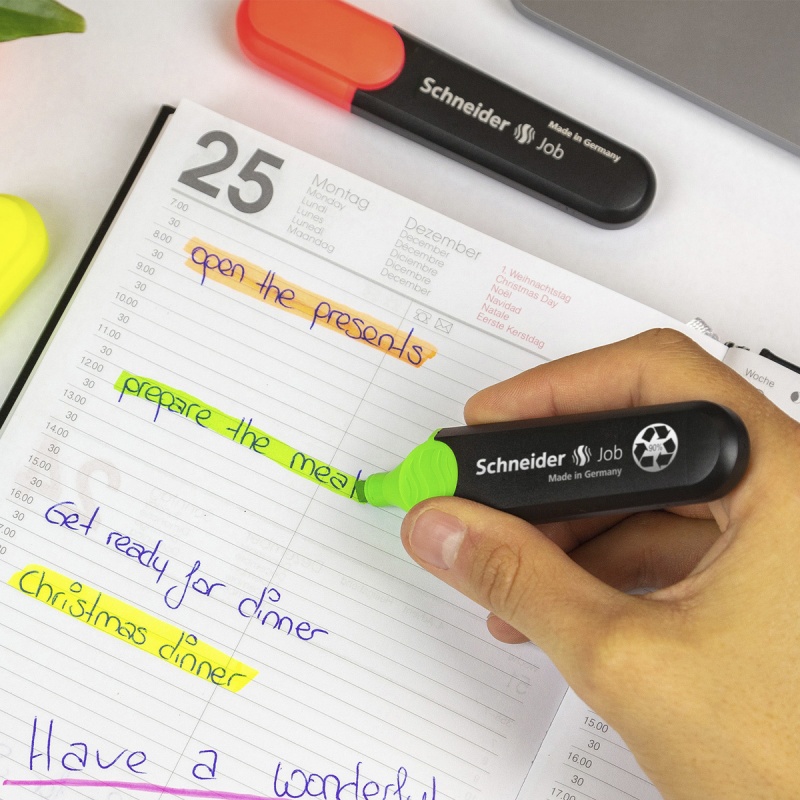 Schneider Job
Made in Germany
25
Montag
Monday
Lundi
Lunes
Lunedì
Maandag
Dezember
December
Décembre
Diciembre
Dicembre
December
1. Weihnachtstag
Christmas Day
Noël
Navidad
Natale
Eerste Kerstdag
Woche
7.00
30
8.00
30
9.00
30
10.00
30
11.00
30
12.00
30
13.00
30
14.00
30
15.00
30
16.00
30
7.00
30
open the presents
prepare the meal
Get ready for dinner
Christmas dinner
Have a wonderful
Schneider Job
Made in Germany
90%
15.00
30
16.00
30
17.00